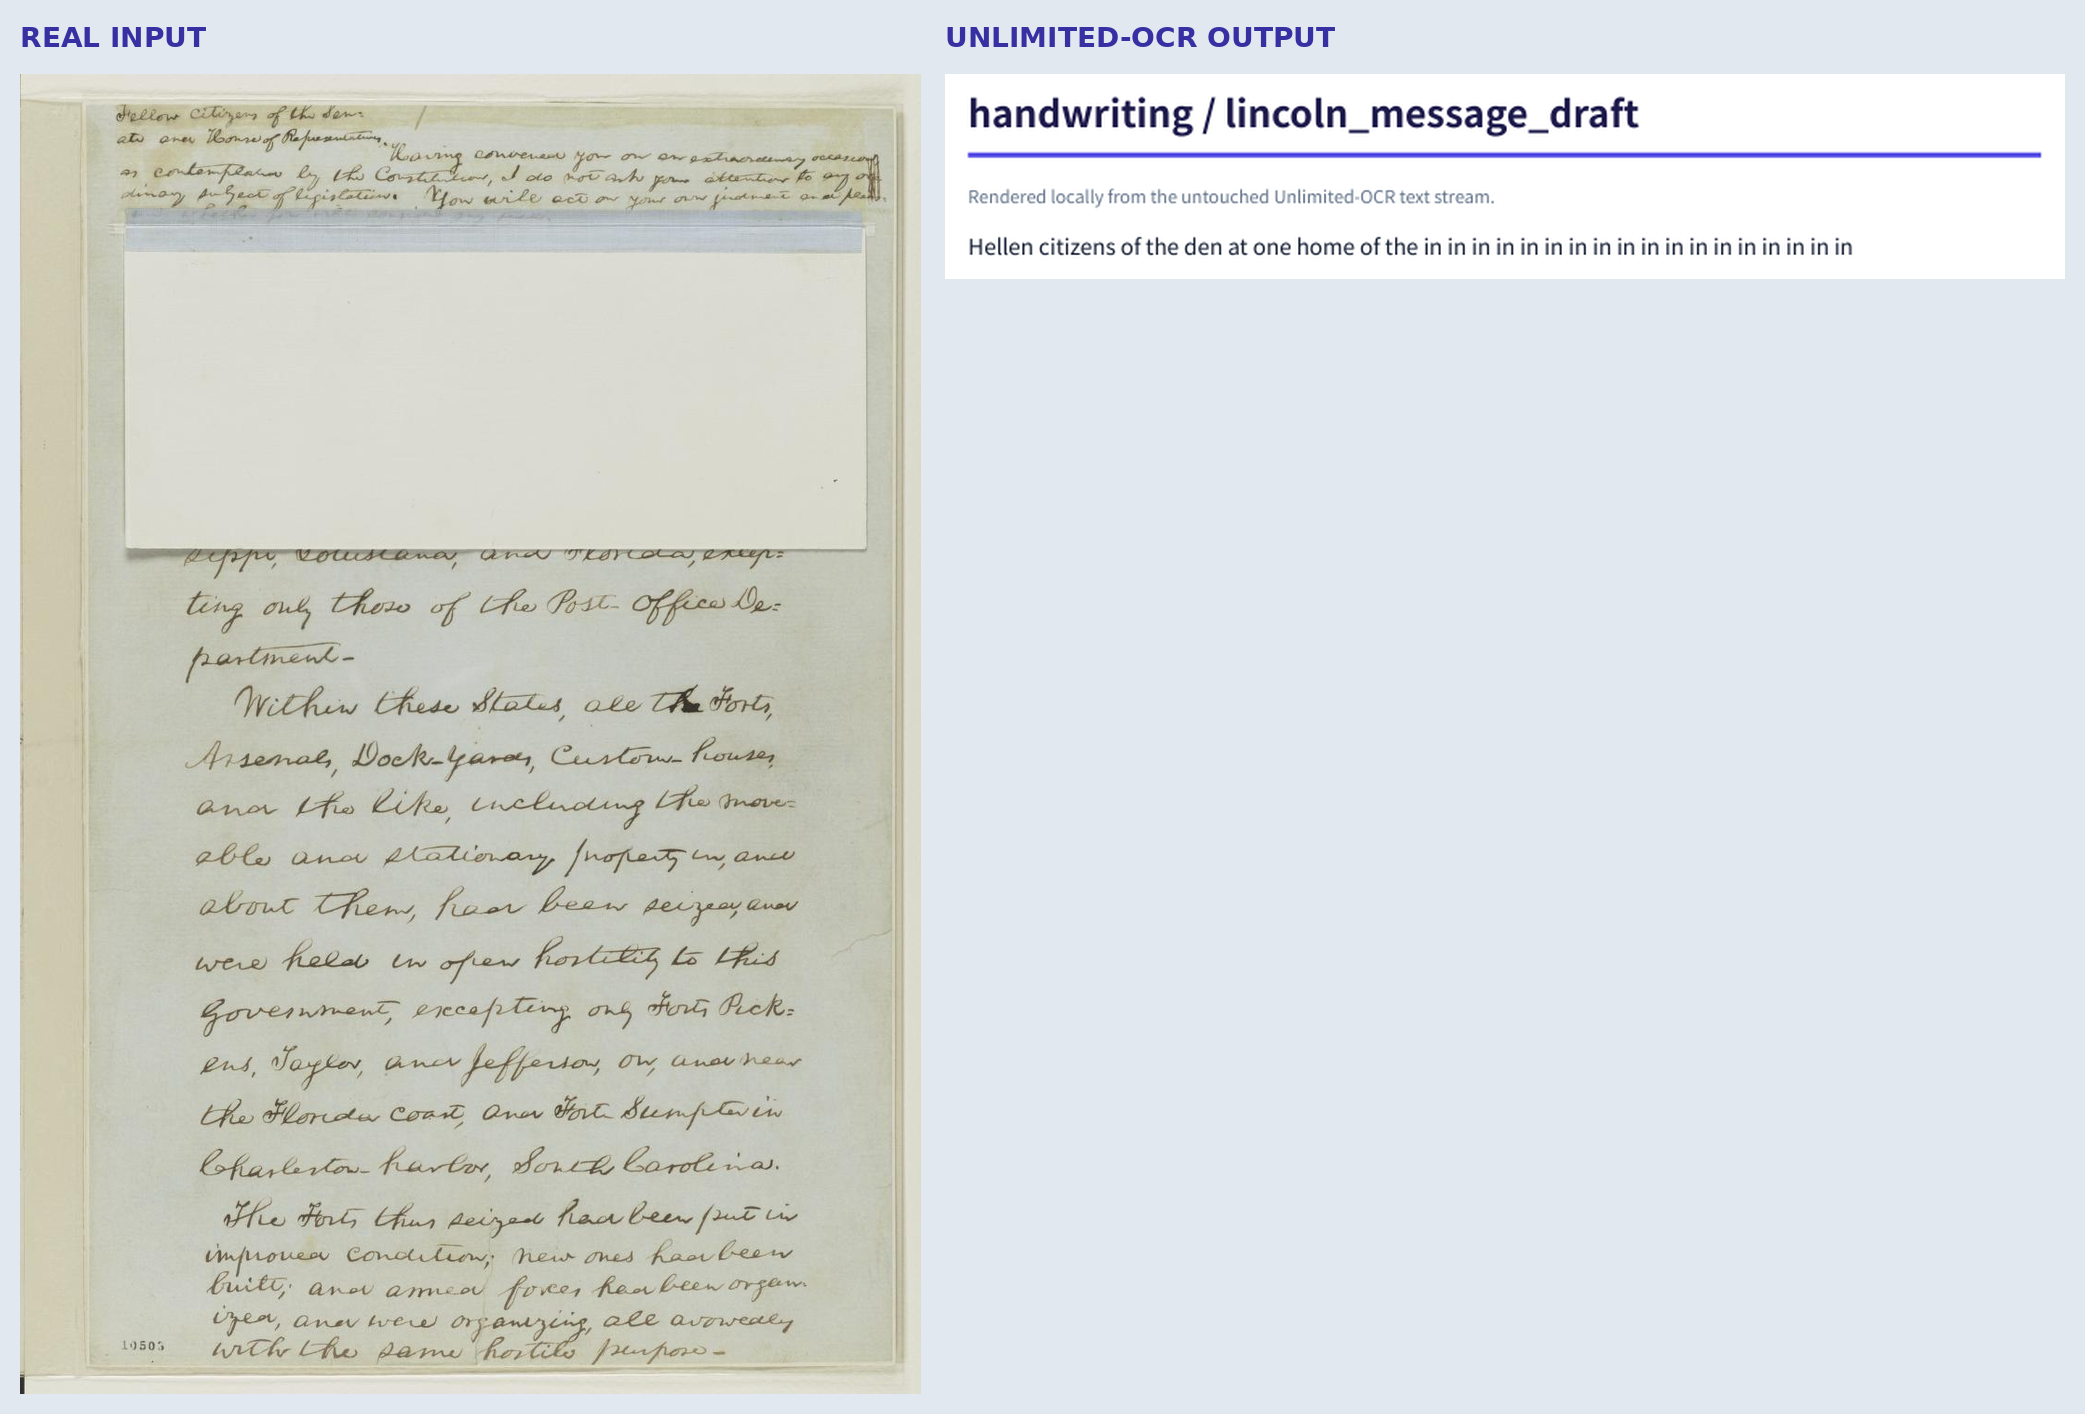 REAL INPUT
Fellow citizens of the Sen=
ate and House of Representatives,
Having convened you on an extraordinary occasion,
as contemplated by the Constitution, I do not ask your attention to any or=
dinary subject of legislation. You will act on your own judgment and
sippi, Louisiana, and Florida, excep=
ting only those of the Post-Office De=
partment-
Within these States, all the Forts,
Arsenals, Dock-Yards, Custom-houses,
and the like, including the move=
able and stationary property in, and
about them, had been seized, and
were held in open hostility to this
Government, excepting only Forts Pick=
ens, Taylor, and Jefferson, on, and near
the Florida coast, and Fort Sumpter in
Charleston-harbor, South Carolina.
The Forts thus seized had been put in
improved condition; new ones had been
built; and armed forces had been organ=
ized, and were organizing, all avowedly
with the same hostile purpose-
10505
UNLIMITED-OCR OUTPUT
handwriting / lincoln_message_draft
Rendered locally from the untouched Unlimited-OCR text stream.
Hellen citizens of the den at one home of the in in in in in in in in in in in in in in in in in in